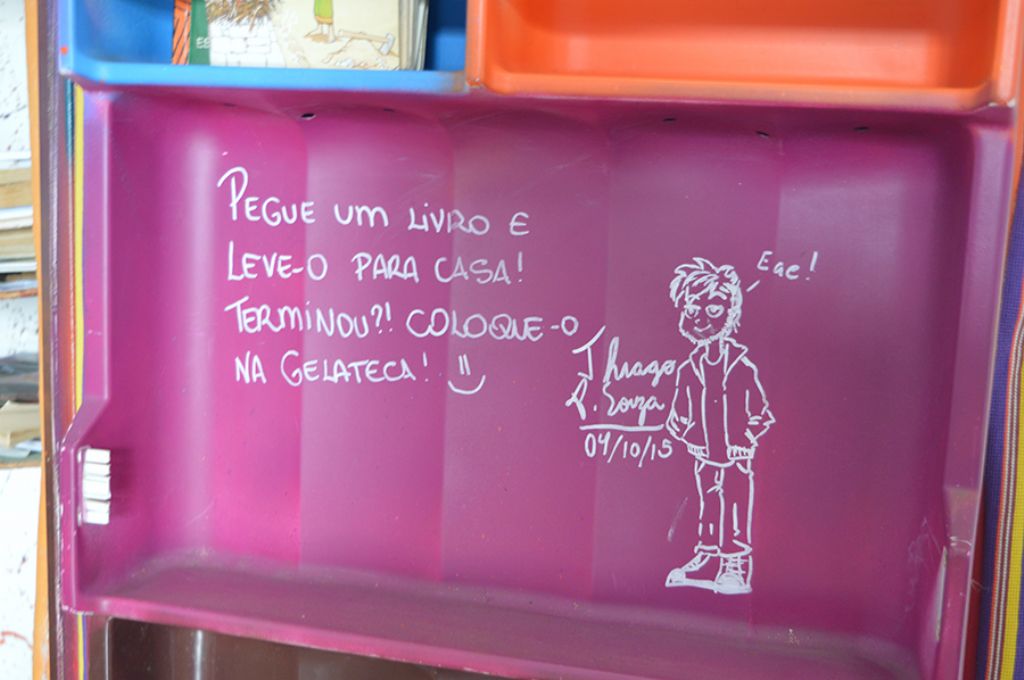 PEGUE UM LIVRO E
LEVE-O PARA CASA!
TERMINOU?! COLOQUE-O
NA GELATECA! :)
Eae!
Thiago
R. Souza
04/10/15